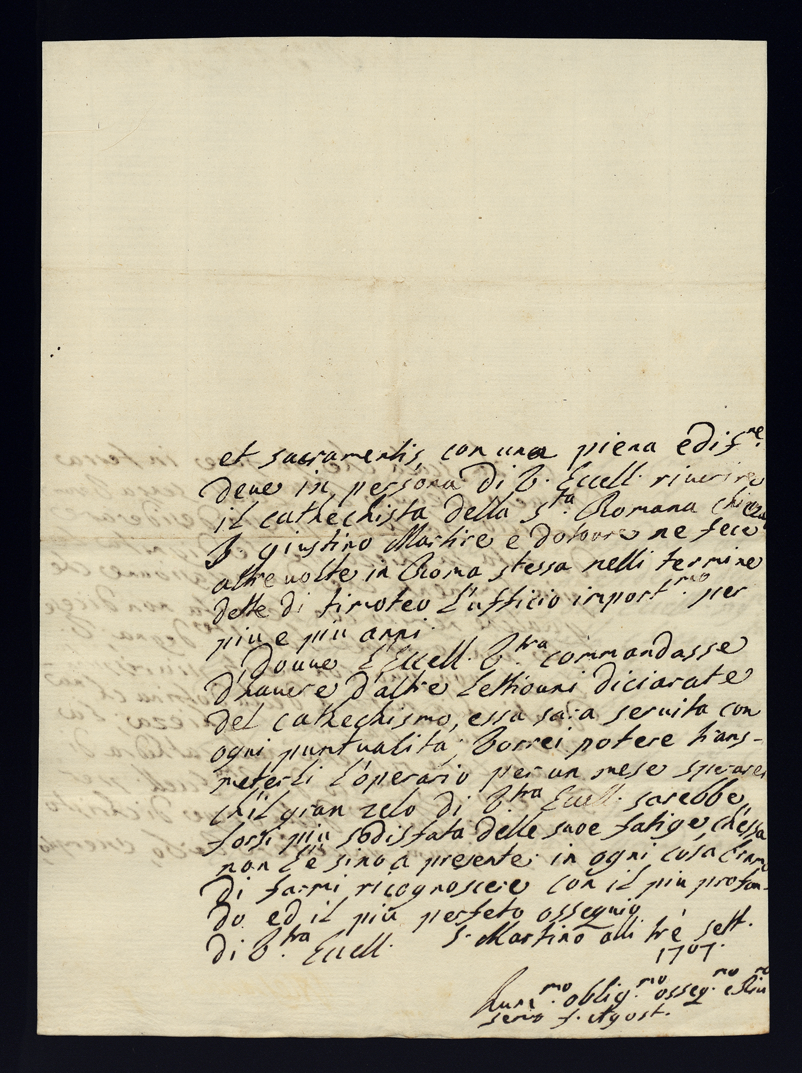 et sacramentis, con una piena edif.ne
deve in persona di V. Eccell. riverire
il cathechista della S.ta Romana chiesa
S giustino Martire e dottore ne fece
altre volte in Roma stessa nelli termine
dette di timoteo l'ufficio import.mo per
piu e piu anni.
Douue l'Eccell. V.tra commandasse
d'hauere d'altre lettioni diciarate
del cathechismo, essa sara seruita con
ogni puntualità; Vorrei potere trans-
meterli l'operario per un mese sperarei
ch'il gran zelo di V.tra Eccell. sarebbe
forsi piu sodisfata delle sue fatige ch'essa
non l'è sino a presente in ogni cosa bramo
di farmi ricognoscere con il piu profon-
do ed il più perfeto ossequio
di V.tra Eccell. S. Martino alli tré sett.
1707.
oblig.mo osseq.mo e
servo f. Agost.